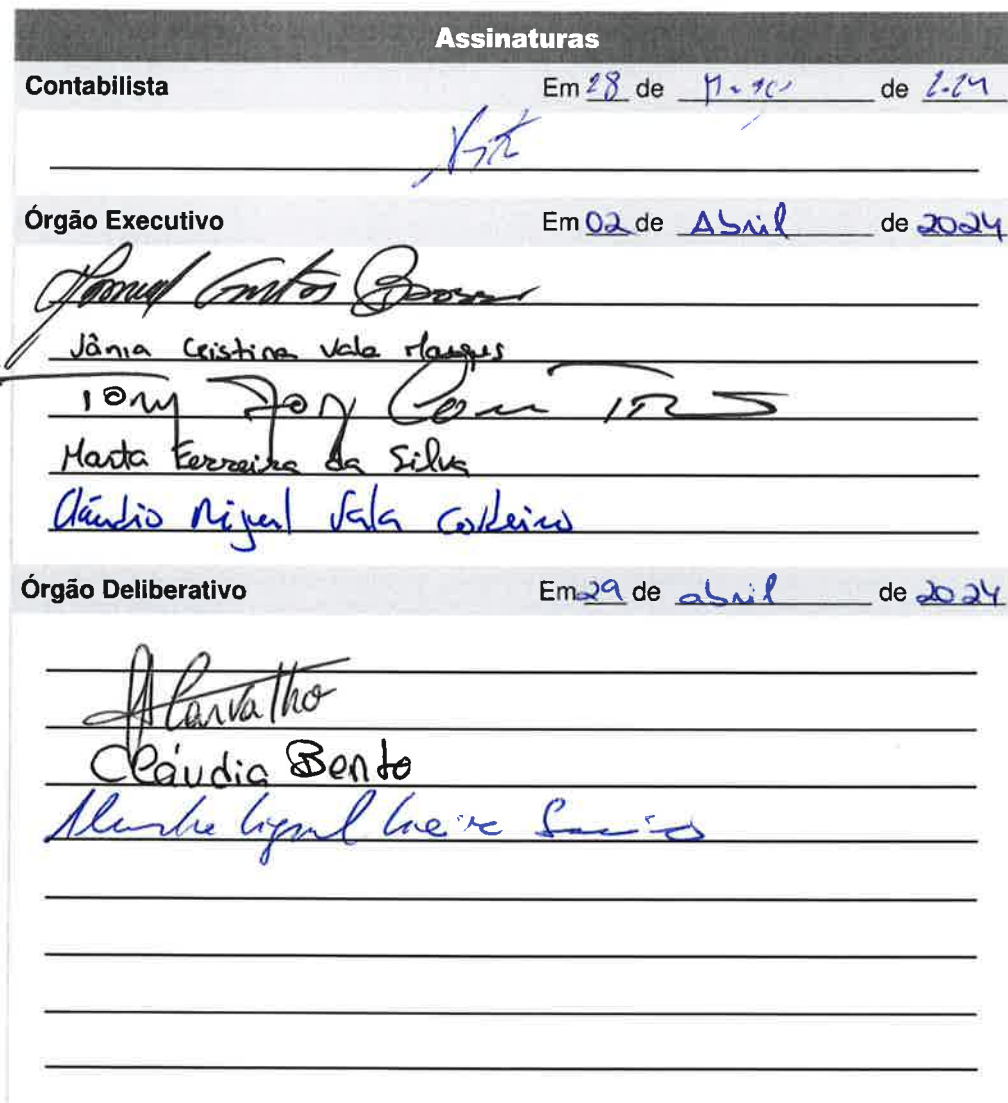 Assinaturas
Contabilista Em 28 de Março de 2024
Órgão Executivo Em 02 de Abril de 2024
Jânia Cristina Vala Marques
Tony
Marta Ferreira da Silva
Cláudio Miguel Vala Cordeiro
Órgão Deliberativo Em 29 de abril de 2024
Carvalho
Cláudia Bento